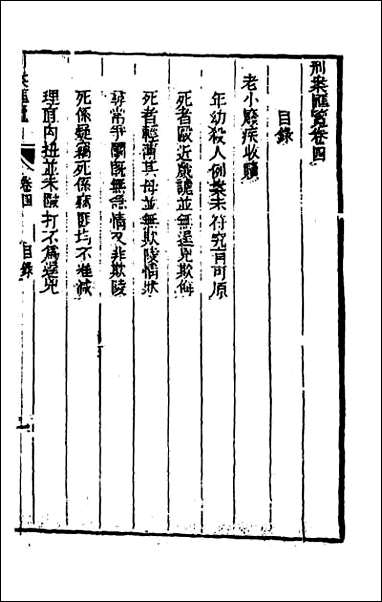 刑案匯覽卷四
目錄
老小廢疾收贖
年幼殺人例案未符究有可原
死者毆近戲謔並無逞兇欺侮
死者輕薄其母並無欺陵情狀
尋常爭鬬旣無急情又非欺陵
死係疑竊死係竊匪均不准減
理直內扭並未毆打不爲逞兇
卷四 目錄 一